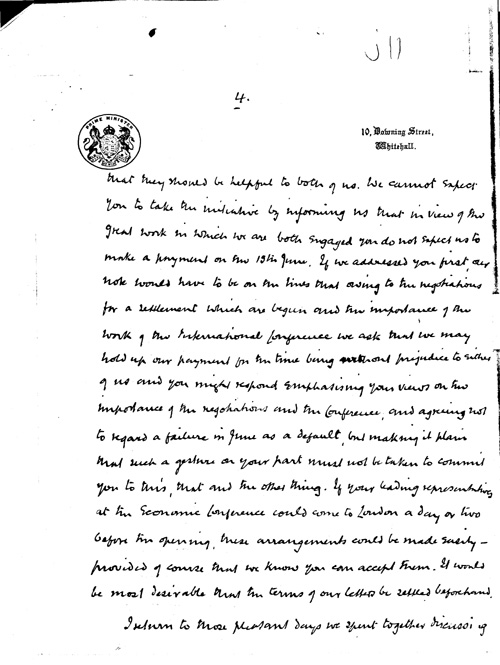 J11
4.
PRIME MINISTER
10, Downing Street,
Whitehall.
that they should be helpful to both of us. We cannot expect
you to take the initiative by informing us that in view of the
great work in which we are both engaged you do not expect us to
make a payment on the 15th June. If we addressed you first, our
note would have to be on the lines that owing to the negotiations
for a settlement which are begun and the importance of the
work of the International Conference we ask that we may
hold up our payment for the time being without prejudice to either
of us and you might respond emphasising your views on the
importance of the negotiations and the Conference, and agreeing not
to regard a failure in June as a default, but making it plain
that such a gesture on your part must not be taken to commit
you to this, that and the other thing. If your leading representatives
at the Economic Conference could come to London a day or two
before the opening, these arrangements could be made easily –
provided of course that we know you can accept them. It would
be most desirable that the terms of our letters be settled beforehand.
I return to those pleasant days we spent together discussing